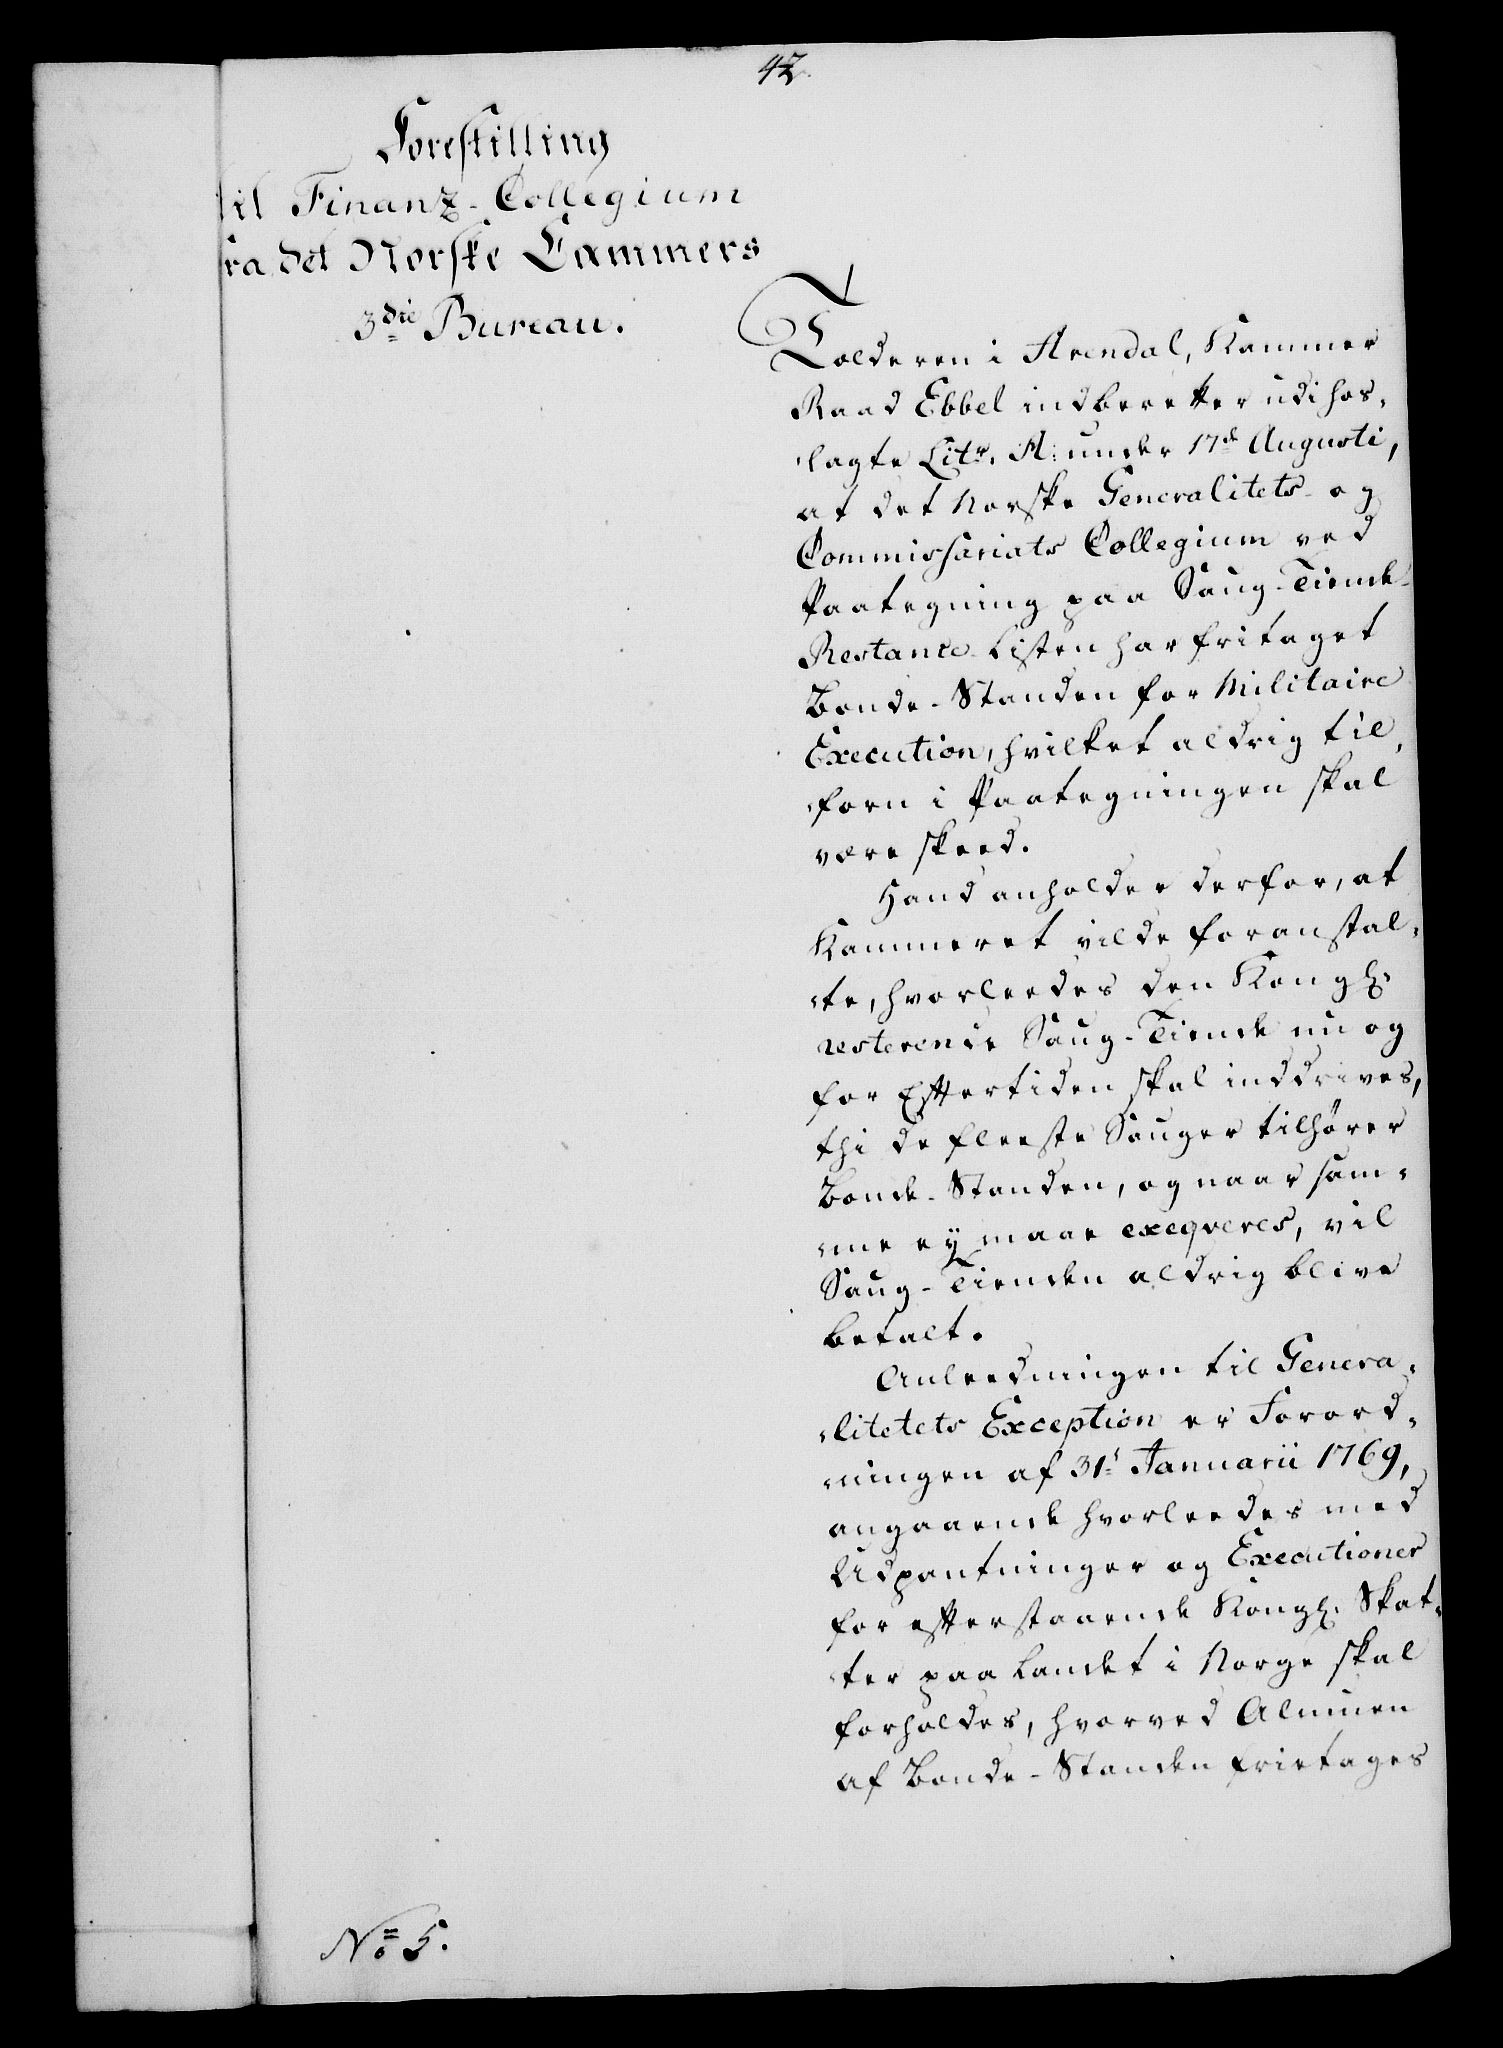 42.
Forestilling
til Finanz-Collegium
fra det Norske Cammers
3die Bureau.
Tolderen i Arendal, Kammer
Raad Ebbel indberetter udi hos-
lagte Litr. A: under 17de Augusti,
at det Norske Generalitets- og
Commissariats Collegium ved
Paategning paa Saug-Tiende-
Restance-Listen har fritaget
Bonde-Standen for Militaire
Execution, hvilket aldrig til-
forn i Paategningen skal
være skeed.
Hand anholder derfor, at
Kammeret vilde foranstal-
te, hvorleedes den Kongl.
resterende Saug-Tiende nu og
for Eftertiden skal inddrives,
thi de fleeste Sauger tilhører
Bonde-Standen, og naar sam-
me ey maae exeqveres, vil
Saug-Tienden aldrig blive
betalt.
Anleedningen til Genera-
litetets Exception er Forord-
ningen af 31te Januarii 1769,
angaaende hvorleedes med
Udpantninger og Executioner
for efterstaaende Kongl. Skat-
ter paa Landet i Norge skal
forholdes, hvorved Almuen
af Bonde-Standen frietages
No 5.